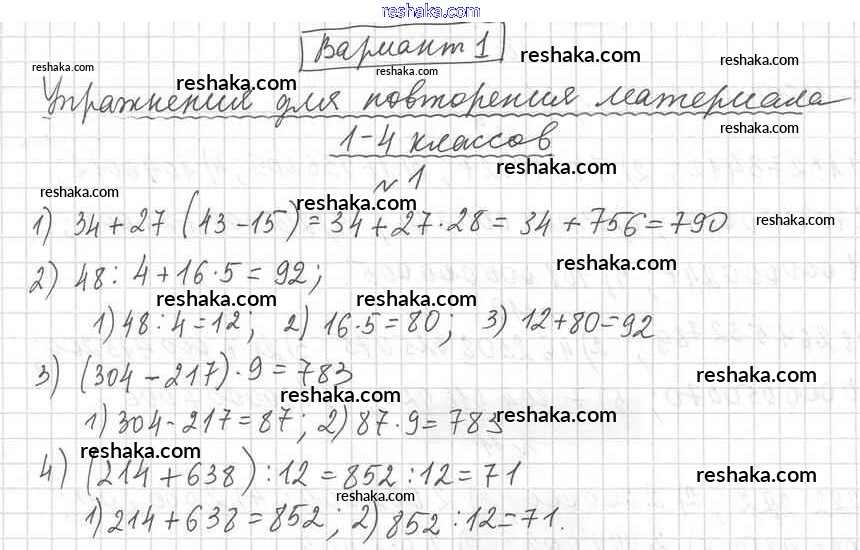 reshaka.com
Вариант 1
reshaka.com
reshaka.com
reshaka.com
reshaka.com
reshaka.com
Упражнения для повторения материала
reshaka.com
reshaka.com
1-4 классов
reshaka.com
№ 1
reshaka.com
reshaka.com
1) 34+27 (43-15) = 34+27·28 = 34+756=790
reshaka.com
2) 48: 4+16·5 = 92;
reshaka.com
reshaka.com
reshaka.com
1) 48:4=12; 2) 16·5=80; 3) 12+80=92
3) (304-217)·9=783
reshaka.com
reshaka.com
1) 304-217=87; 2) 87·9=783
reshaka.com
reshaka.com
4) (214+638):12=852:12=71
reshaka.com
reshaka.com
1) 214+638=852; 2) 852:12=71.